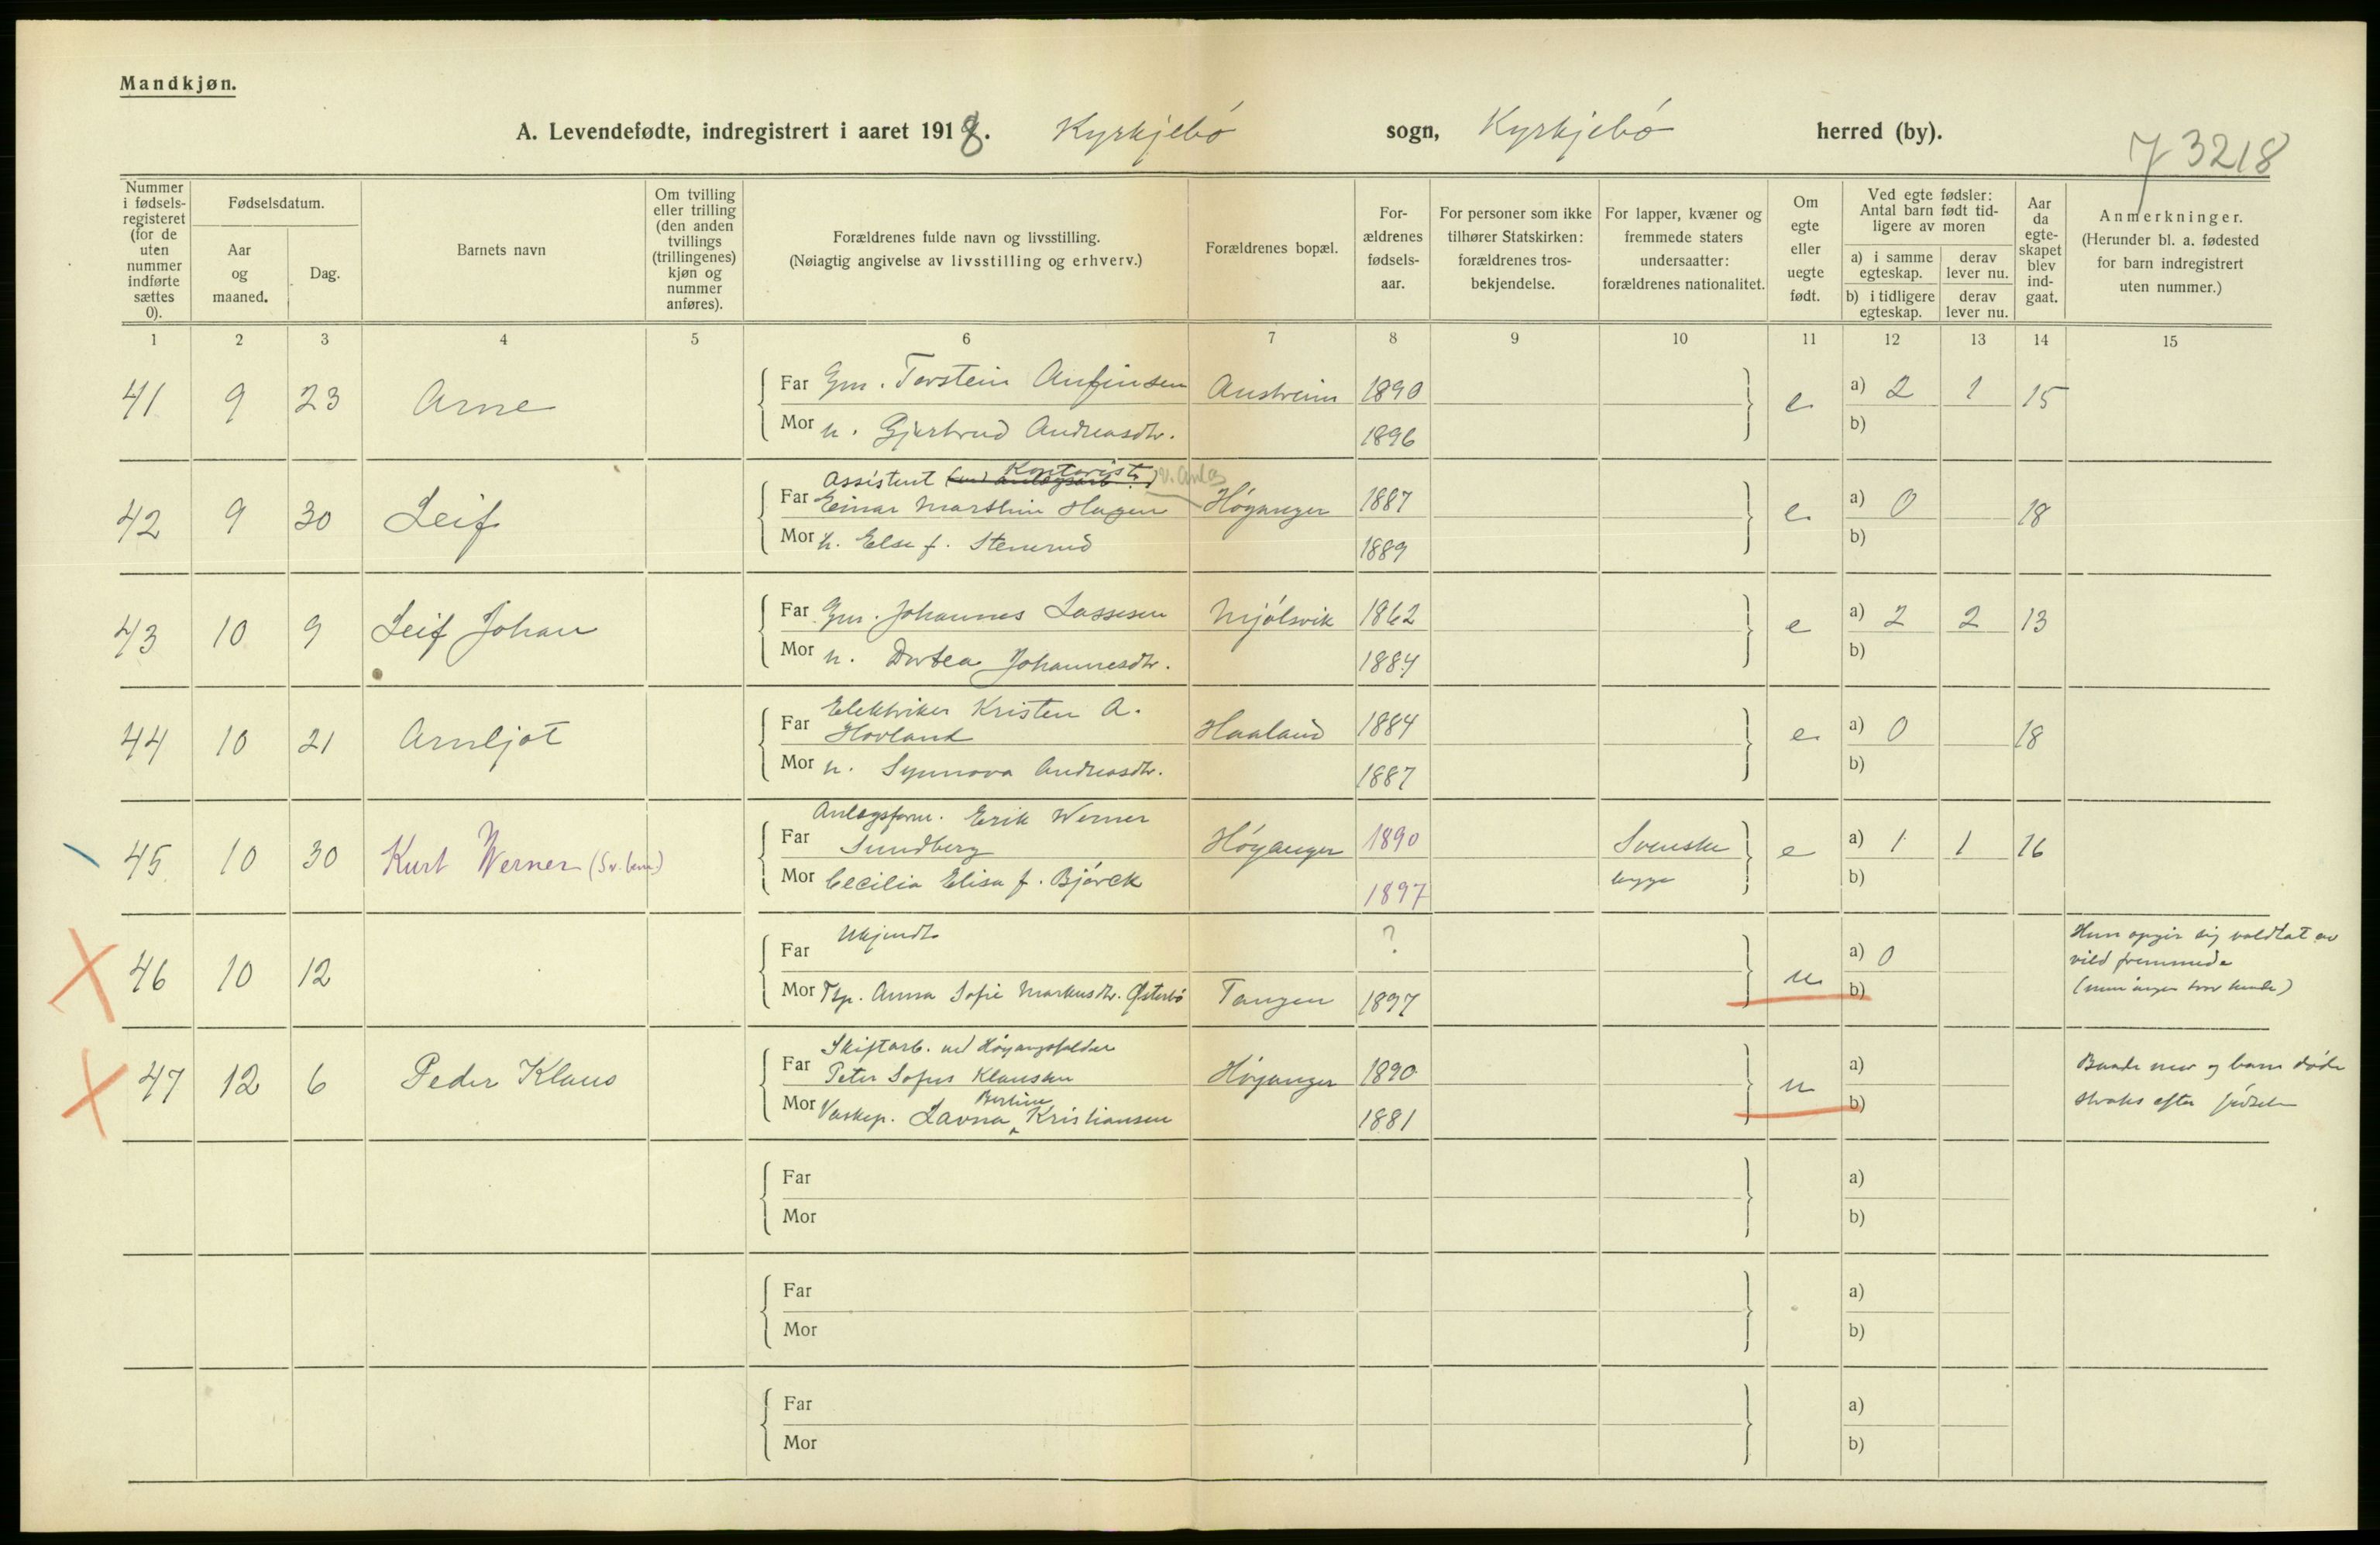 Mandkjøn.
A. Levendefødte, indregistrert i aaret 1918. Kyrkjebó sogn, Kyrkjebó herred (by).
7 3218
Nummer i fødsels-registeret (for de uten nummer indførte sættes 0).
Fødselsdatum.
Aar og maaned.
Dag.
Barnets navn
Om tvilling eller trilling (den anden tvillings (trillingenes) kjøn og nummer anføres).
Forældrenes fulde navn og livsstilling.
(Nøiagtig angivelse av livsstilling og erhverv.)
Forældrenes bopæl.
For-ældrenes fødsels-aar.
For personer som ikke tilhører Statskirken: forældrenes tros-bekjendelse.
For lapper, kvæner og fremmede staters undersaatter: forældrenes nationalitet.
Om egte eller uegte født.
Ved egte fødsler: Antal barn født tid-ligere av moren
a) i samme egteskap.
derav lever nu.
b) i tidligere egteskap.
derav lever nu.
Aar da egte-skapet blev ind-gaat.
Anmerkninger.
(Herunder bl. a. fødested for barn indregistrert uten nummer.)
1 2 3 4 5 6 7 8 9 10 11 12 13 14 15
41 9 23 Arne Far Gm. Torstein Anfinsen Austreim 1890 e. a) 2 1 15
Mor h. Gjertrud Andreasdtr. 1896 b)
Assistent Kontorist v. Anlæg
42 9 30 Leif Far Einar Marthin Hagen Høyanger 1887 e. a) 0 18
Mor h. Else f. Stenerud 1889 b)
43 10 9 Leif Johan Far Gm. Johannes Lassesen Mjólsvik 1862 e a) 2 2 13
Mor h. Dortea Johannesdtr. 1884 b)
Elektriker Kristen A.
44 10 21 Arnljot Far Hovland Haaland 1884 e. a) 0 18
Mor h. Synnova Andreasdtr. 1887 b)
Anlægsform. Erik Werner
45 10 30 Kurt Werner Far Sundberg Høyanger 1890 Svenske e a) 1 1 16
Mor Cecilia Elisa f. Bjórck 1897 begge b)
46 10 12 Far Ukjendt ? u a) 0 Hun opgir sig voldtat av
vild fremmede
Mor Tp. Anna Sofie Markusdtr. Østerbó Tangen 1897 b)
Skiftarb. ved
47 12 6 Peder Klaus Far Peter Sofus Klausen Høyanger 1890 u a) Baade mor og barn døde
Bertine
Mor Vaskep. Lavna Kristiansen 1881 b) straks efter fødselen
Far a)
Mor b)
Far a)
Mor b)
Far a)
Mor b)